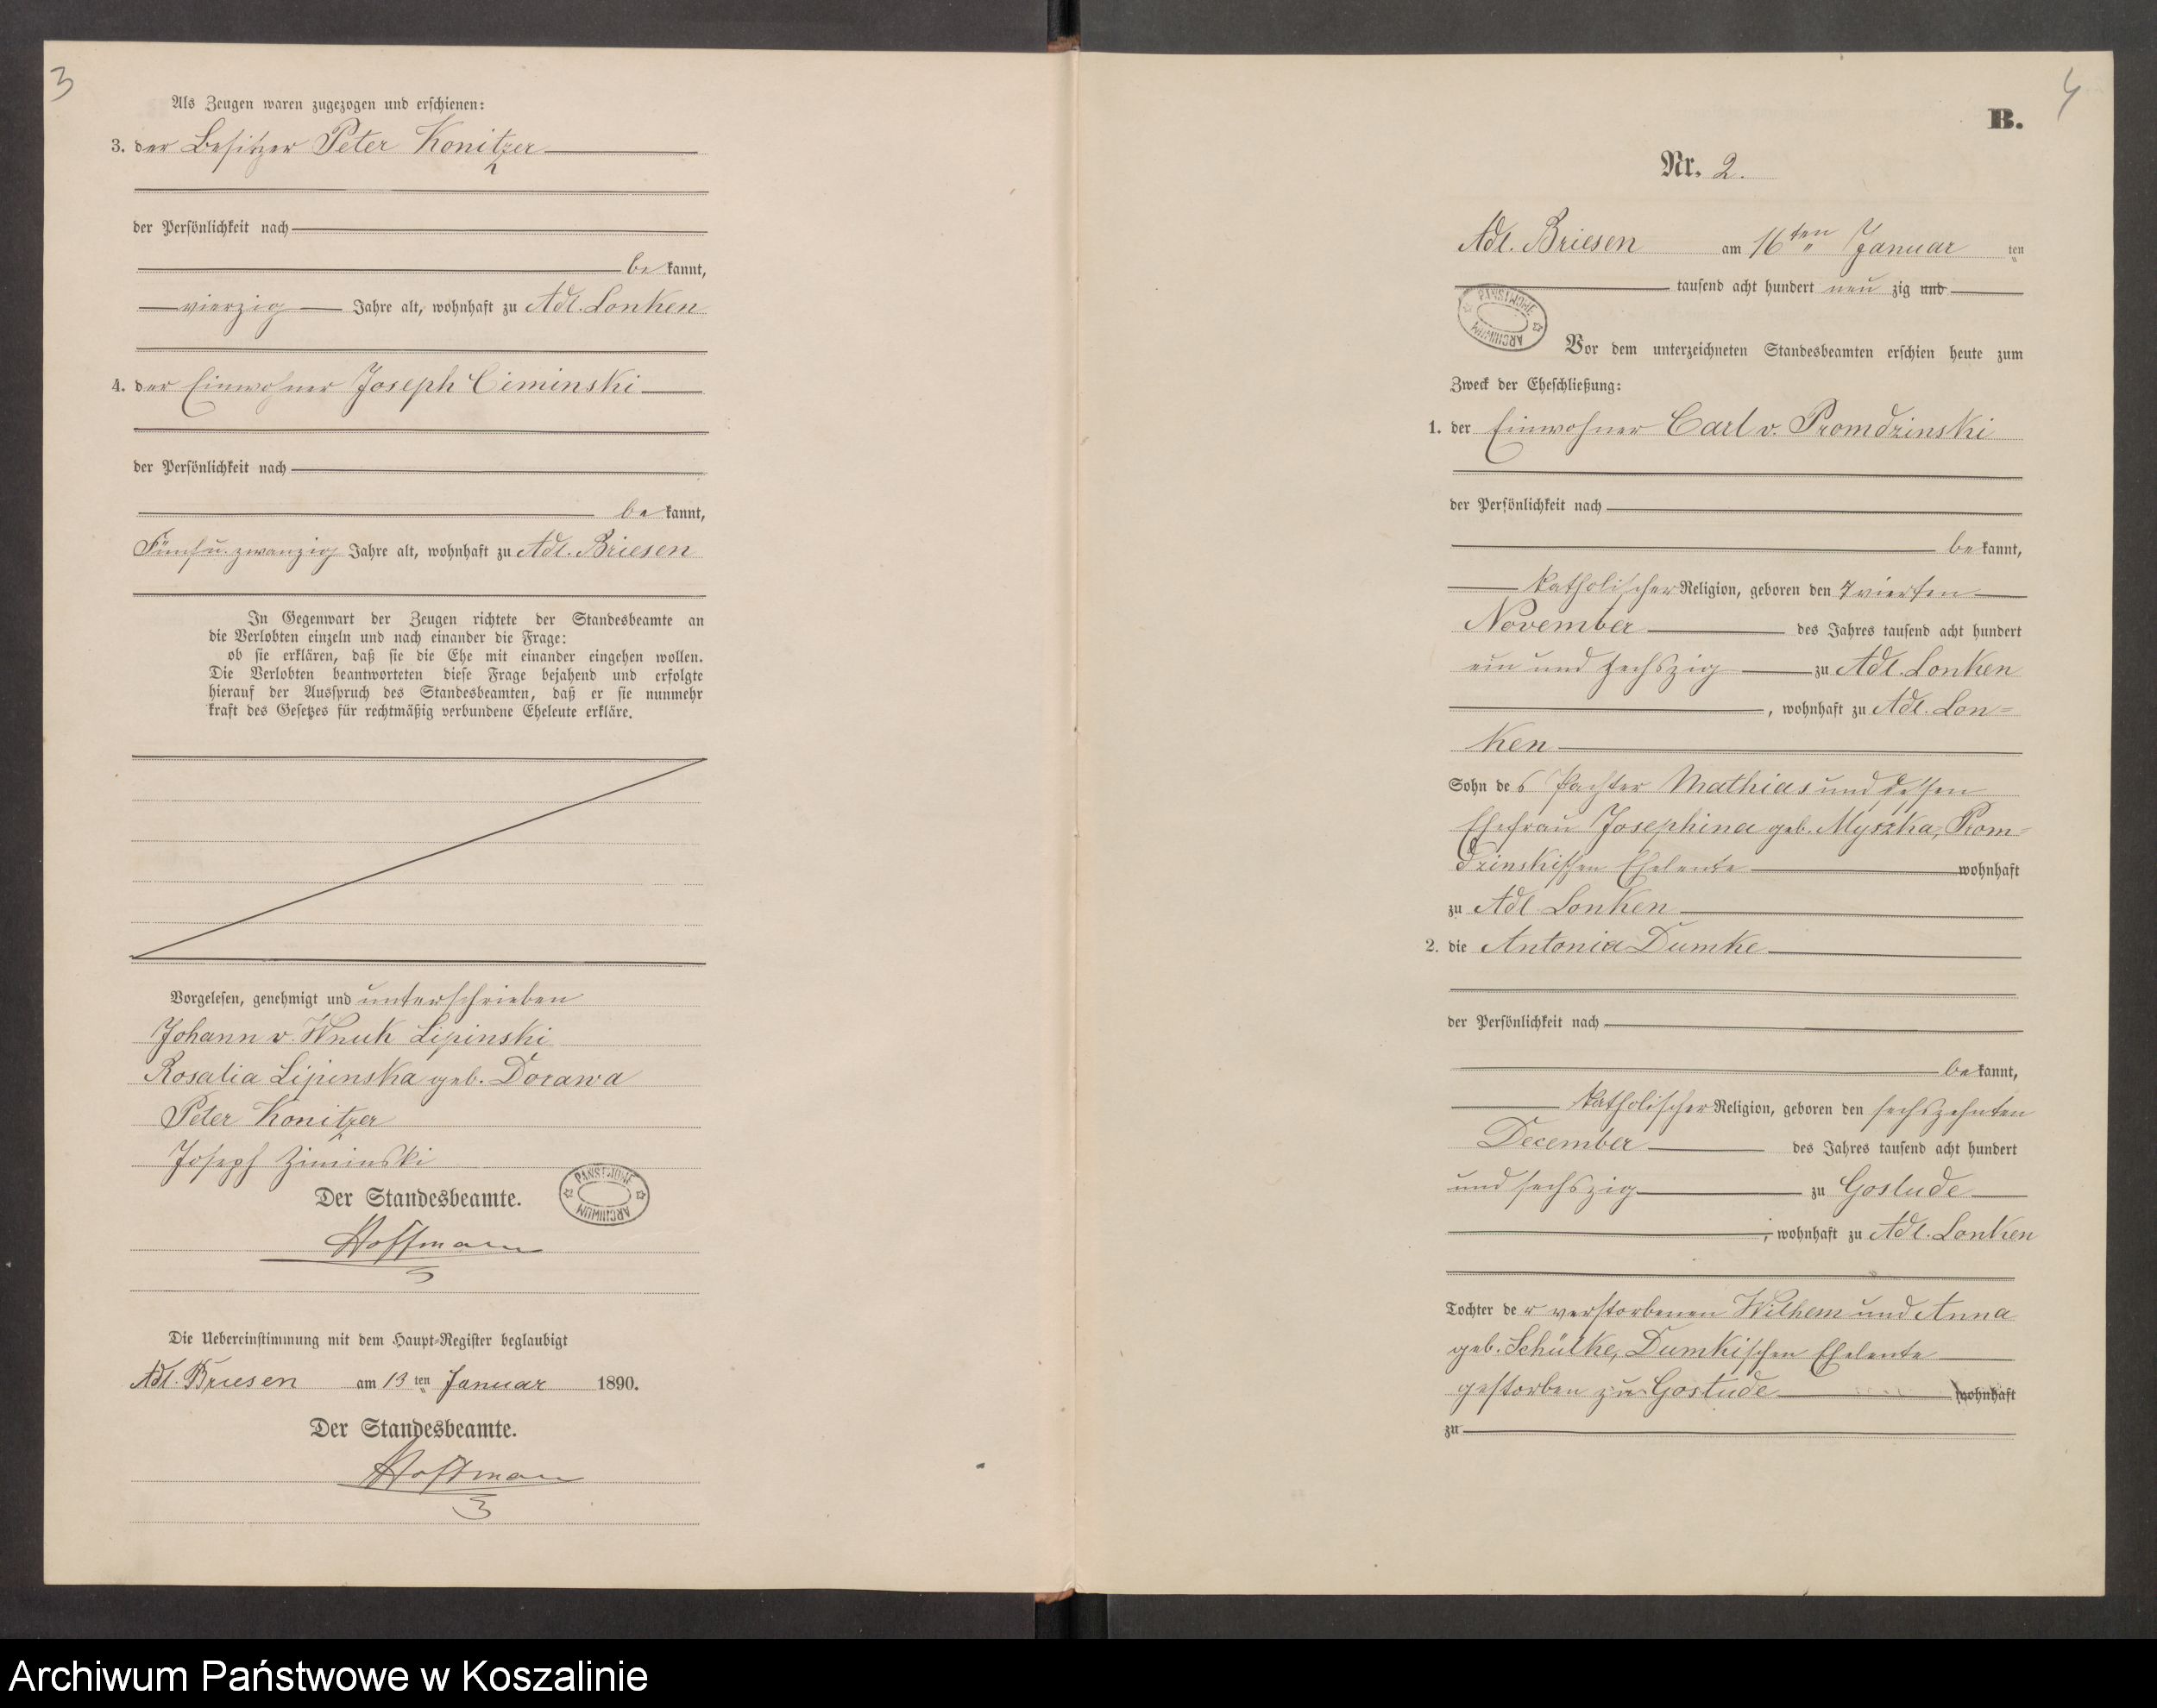 3
Als Zeugen waren zugezogen und erschienen:
3. der Besitzer Peter Konitzer
der Persönlichkeit nach
be kannt,
vierzig Jahre alt, wohnhaft zu Adl. Lonken
4. der Einwohner Joseph Ciminski
der Persönlichkeit nach
be kannt,
Fünf u. zwanzig Jahre alt, wohnhaft zu Adl. Briesen
In Gegenwart der Zeugen richtete der Standesbeamte an
die Verlobten einzeln und nach einander die Frage:
ob sie erklären, daß sie die Ehe mit einander eingehen wollen.
Die Verlobten beantworteten diese Frage bejahend und erfolgte
hierauf der Ausspruch des Standesbeamten, daß er sie nunmehr
kraft des Gesetzes für rechtmäßig verbundene Eheleute erkläre.
Vorgelesen, genehmigt und unterschrieben
Johann v. Wnuk Lipinski
Rosalia Lipinska geb. Dorawa
Peter Konitzer
Joseph Ziminski
PAŃSTWOWE ARCHIWUM
Der Standesbeamte.
Hoffmann
Die Uebereinstimmung mit dem Haupt-Register beglaubigt
Adl. Briesen am 13 ten Januar 1890.
Der Standesbeamte.
Hoffmann
4
B.
Nr. 2.
Adl. Briesen am 16ten Januar ten
tausend acht hundert neu zig und
PAŃSTWOWE ARCHIWUM
Vor dem unterzeichneten Standesbeamten erschien heute zum
Zweck der Eheschließung:
1. der Einwohner Carl v. Promdzinski
der Persönlichkeit nach
be kannt,
katholischer Religion, geboren den vierten
November des Jahres tausend acht hundert
ein und sechszig zu Adl. Lonken
, wohnhaft zu Adl. Lon=
ken
Sohn des Pachter Mathias und dessen
Ehefrau Josephina geb. Myszka, Prom=
dzinskischen Eheleute wohnhaft
zu Adl Lonken
2. die Antonia Dumke
der Persönlichkeit nach
be kannt,
katholischer Religion, geboren den sechszehnten
December des Jahres tausend acht hundert
und sechszig zu Gostude
, wohnhaft zu Adl. Lonken
Tochter der verstorbenen Wilhem und Anna
geb. Schülke, Dumkischen Eheleute
gestorben zu Gostude wohnhaft
zu
Archiwum Państwowe w Koszalinie